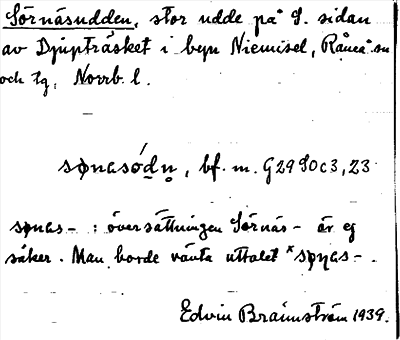 Sörnäsudden, stor udde på S. sidan
av Djupträsket i byn Niemisel, Råneå sn
och tg, Norrb. l.
sɷnasódn̥, bf. m. G29 SO c3,23
sɷnas- : översättningen Sörnäs- är ej
säker. Man borde vänta uttalet *sɷṇas-.
Edvin Brännström 1939.